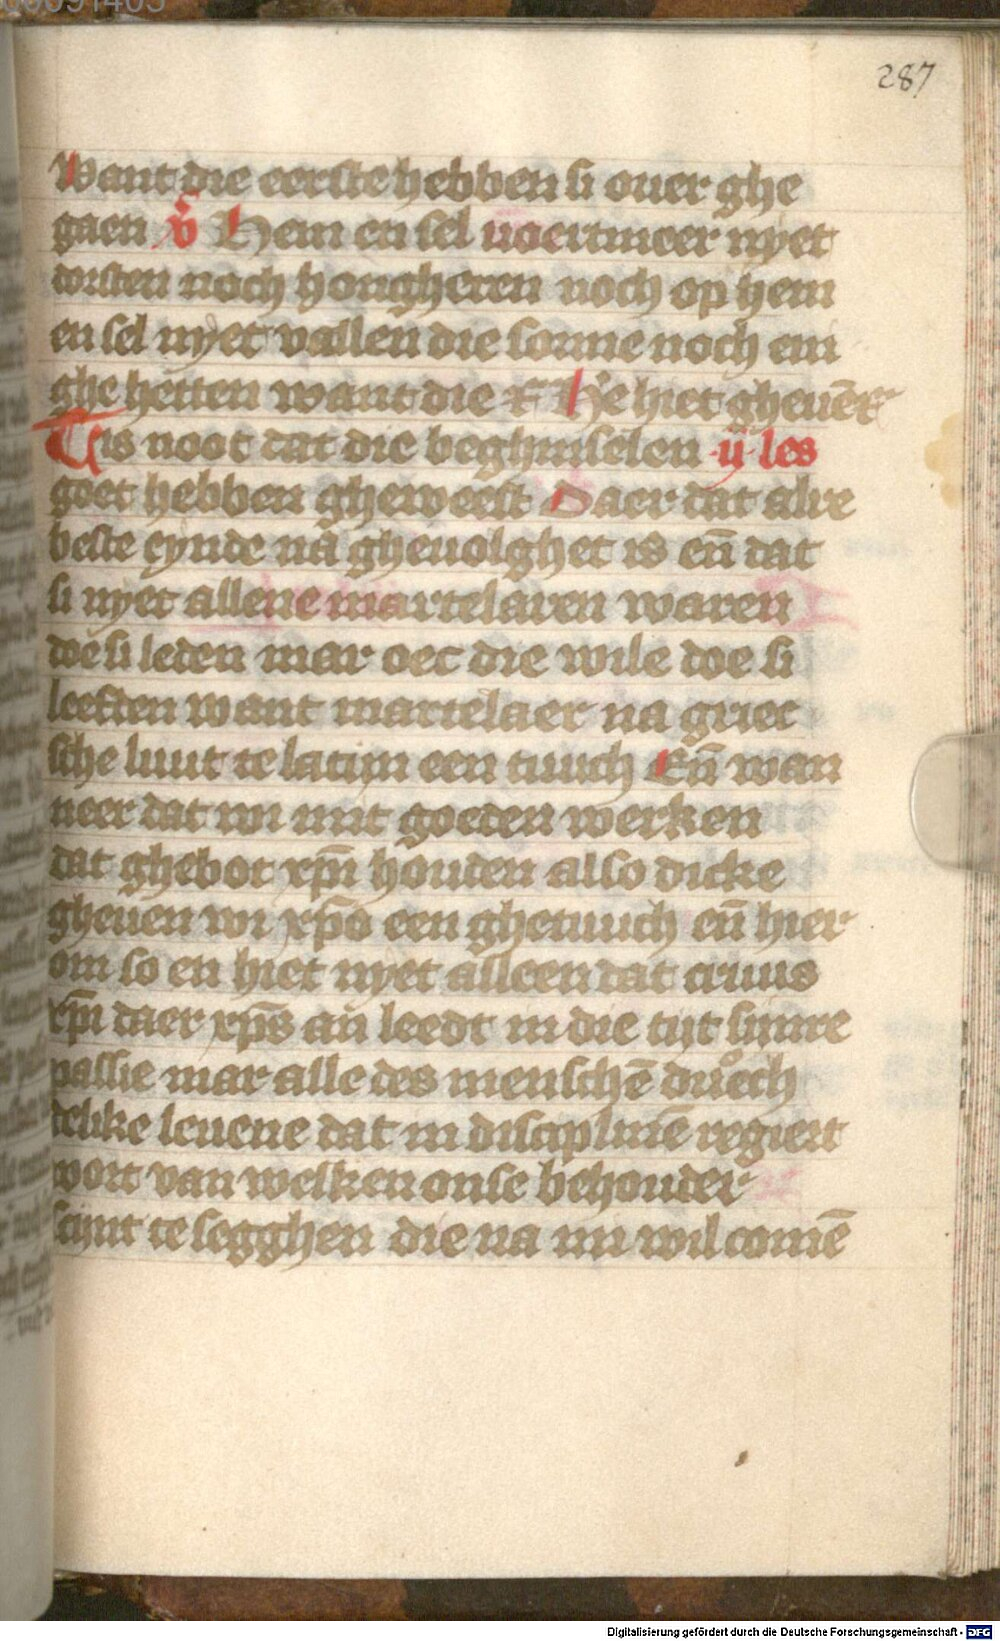 287
Want die eerste hebben si ouer ghe
gaen v̄ Hem en sel uoertmeer nyet
dorsten noch hongheren noch op hem
en sel nyet vallen die sonne noch eni
ghe hetten want die r He hiet gheuēr
Tis noot dat die beghinselen ·ij· les
goet hebben gheweest Daer dat alre
beste eynde na gheuolghet is eñ dat
si nyet allene martelaren waren
doe si leden mar oec die wile doe si
leefden want martelaer na griec
sche luut te latijn een tuuch Eñ wan
neer dat wi mit goeden werken
dat ghebot xpī houden also dicke
gheuen wi xpō een ghetuuch eñ hier
om so en hiet nyet alleen dat cruus
xpī daer xpс̄ an leedt in die tijt sinre
passie mar alle des menschē duech
delike leuene dat in disciplinē regiert
wort van welken onse behouder
scijnt te segghen die na mi wil comē
Digitalisierung gefördert durch die Deutsche Forschungsgemeinschaft - DFG